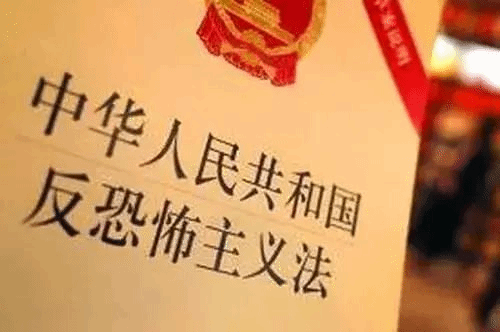 中华人民共和国
反恐怖主义法